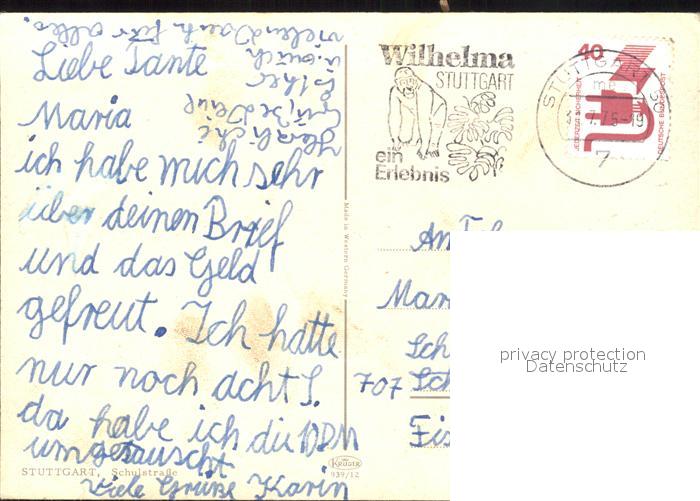 Liebe Tante
Maria
ich habe mich sehr
über deinen Brief
und das Geld
gefreut. Ich hatte
nur noch acht S.
da habe ich die 10 DM
umgetauscht
Viele Grüße Karin
Herzliche
Grüße Deine
Esther
u. auch
vielen Dank für alles.
STUTTGART, Schulstraße
Made in Western Germany
KRÜGER
939/12
Wilhelma
STUTTGART
ein
Erlebnis
STUTTGART
7
40
JEDERZEIT SICHERHEIT
DEUTSCHE BUNDESPOST
An
Mar
Sch
707 Sch
privacy protection
Datenschutz